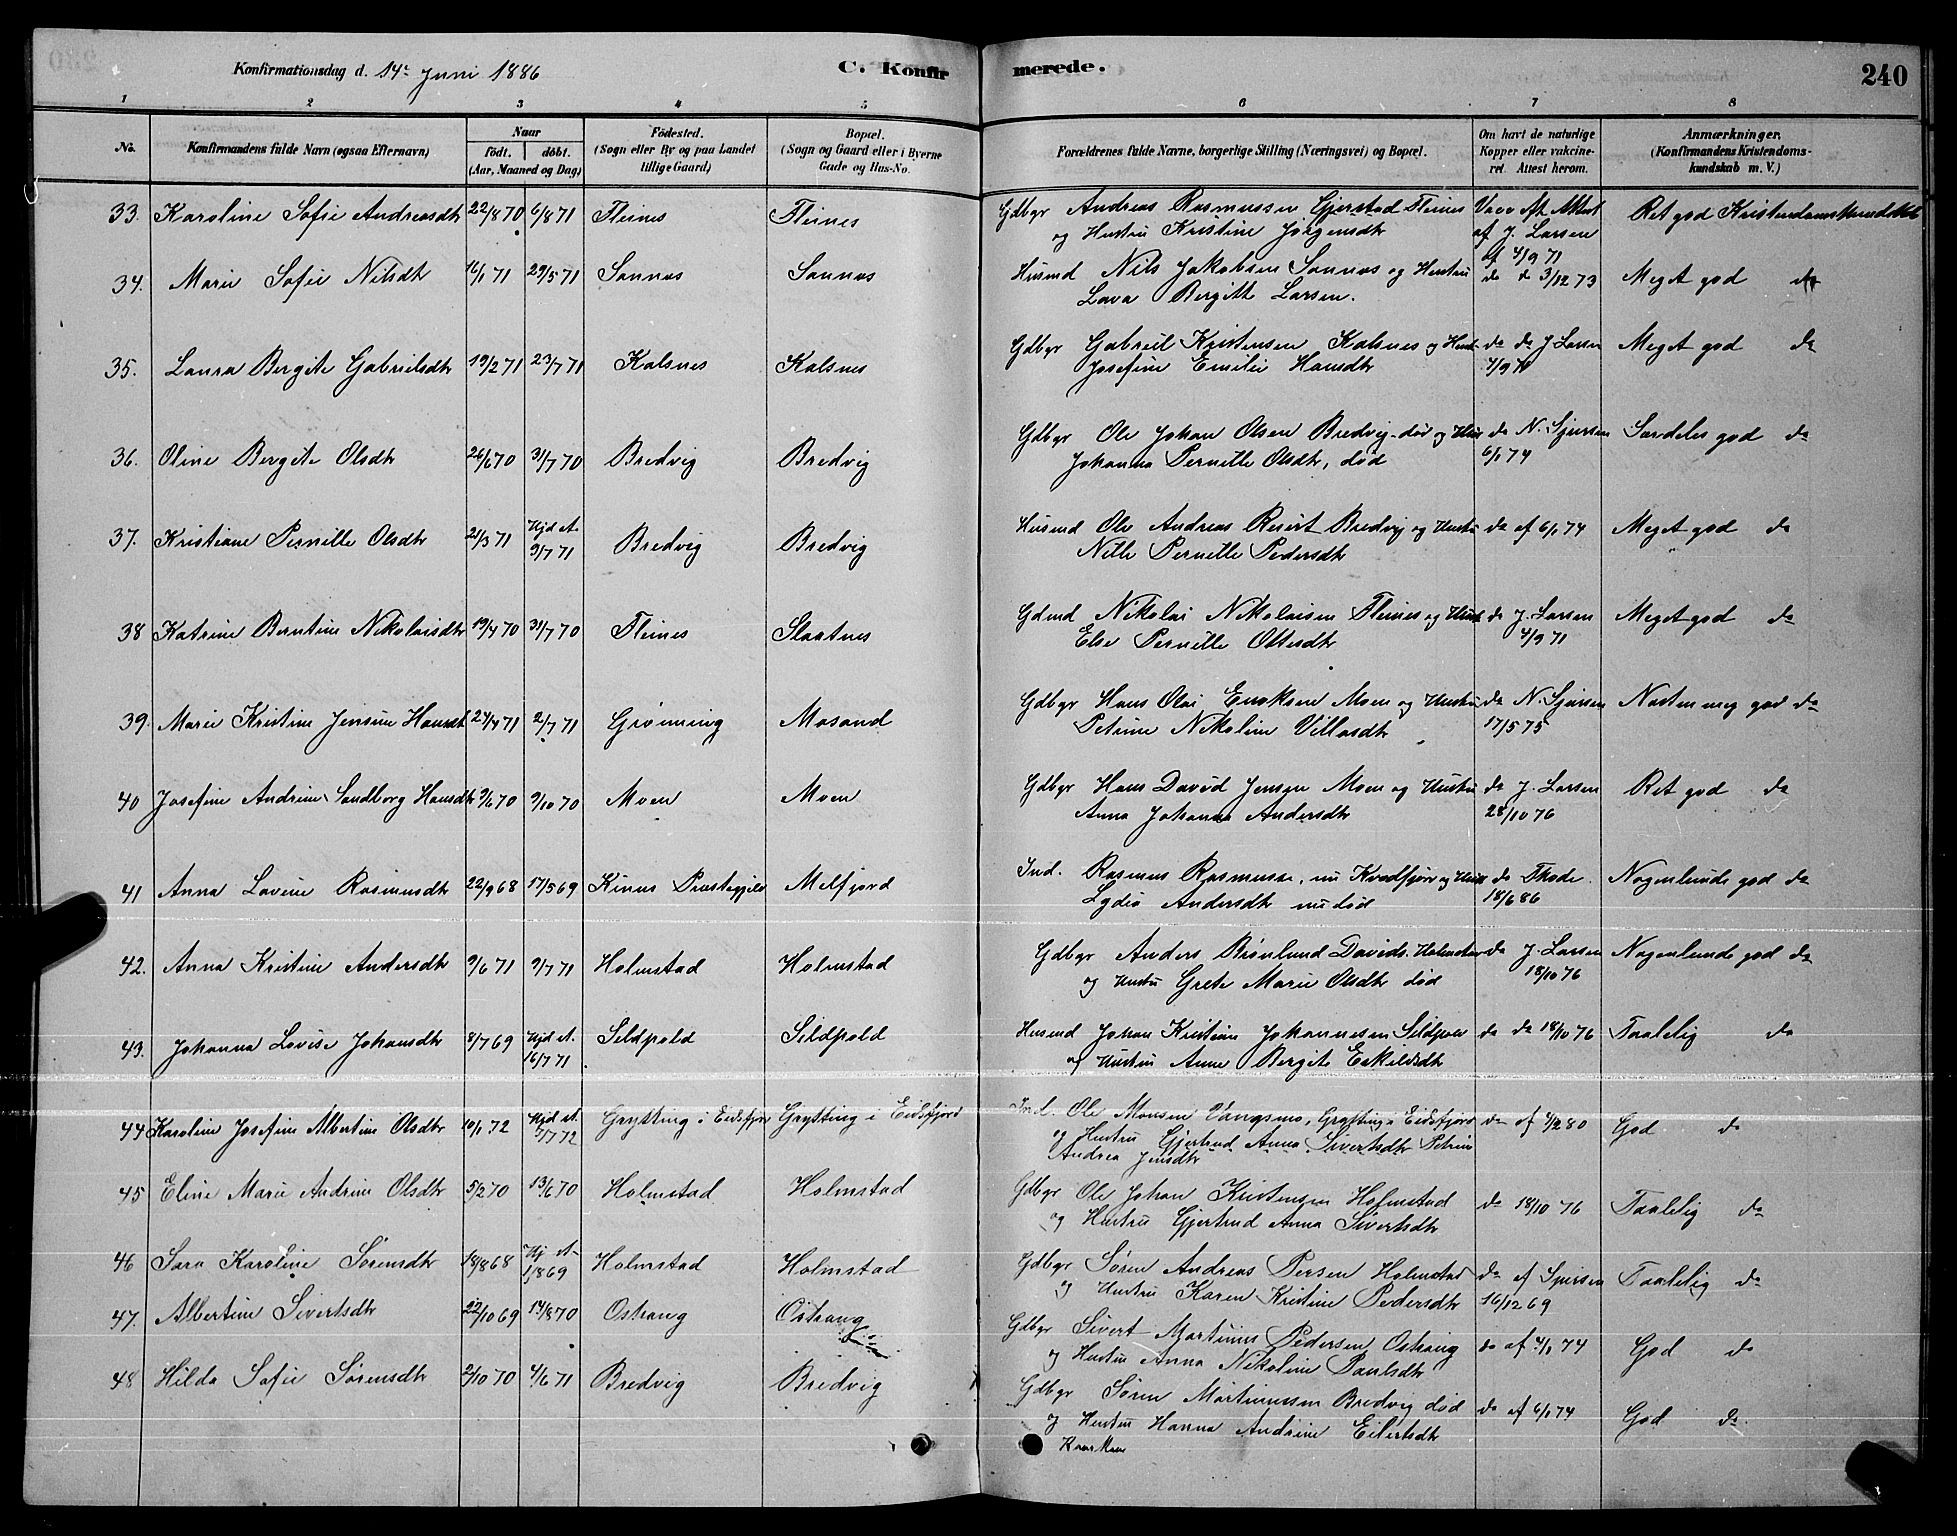 Konfirmationsdag d. 14de Juni 1886 C. Konfirmerede. 240
1 2 3 4 5 6 7 8
No. Konfirmandens fulde Navn (ogsaa Efternavn) Naar født. døbt. (Aar, Maaned og Dag) Fødested. (Sogn eller By og paa Landet tillige Gaard) Bopæl. (Sogn og Gaard eller i Byerne Gade og Hus-No. Forældrenes fulde Navne, borgerlige Stilling (Næringsvei) og Bopæl. Om havt de naturlige Kopper eller vakcineret. Attest herom. Anmærkninger. (Konfirmandens Kristendomskundskab m. V.)
33. Karoline Sofie Andreasdtr 22/8 70 6/8 71 Fleines Fleines Gdbgr Andreas Rasmussen Gjerstad Fleines Vacc Aft. Attest Ret god Kristendomskundskab
og Hustru Kristine Jørgensdtr af J. Larsen
af 4/9 71
34. Marie Sofie Nilsdtr 16/1 71 29/5 71 Sannes Sannes Husmd Nils Jakobsen Sannes og Hustru do do 3/12 73 Meget god do
Lava Bergitte Larsen.
35. Laura Bergite Gabrielsdtr 19/2 71 23/7 71 Kalsnes Kalsnes Gdbgr Gabriel Kristensen Kalsnes og Hust. do do J. Larsen Meget god do
Josefine Emilie Hansdtr
36. Oline Bergite Olsdtr 26/6 70 31/7 70 Bredvig Bredvig Gdbgr Ole Johan Olsen Bredvig død og Hust do N. Sjursen Særdeles god do
Johanna Pernille Olsdtr, død 6/1 74
37. Kristiane Pernille Olsdtr 21/3 71 Hjd st. Bredvig Bredvig Husmd Ole Andreas Reiert Bredvig og Hustru do af 6/1 74 Meget god do
9/7 71 Nille Pernille Pedersdtr
38 Katrine Berntine Nikolaisdtr 19/4 70 31/7 70 Fleines Slaatnes Gdmd Nikolai Nikolaisen Fleines og Hust do J. Larsen Meget god do
Else Pernille Ottesdtr 4/9 71
39. Marie Kristine Jensine Hansdt 24/4 71 2/7 71 Grønning Mosand Gdbgr Hans Olai Enoksen Moen og Hustru do N. Sjursen Næsten meg god do
Petrine Nikoline Villasdtr 17/5 75
40 Josefine Andrine Sandborg Hansdtr 9/6 70 9/10 70 Moen Moen Gdbgr Hans David Jensen Moen og Hustru do J. Larsen Ret god do
Anna Johanna Andersdtr 28/10 76
41 Anna Lovine Rasmusdtr 22/9 68 17/5 69 Kinns Præstegjeld Melfjord Ind. Rasmus Rasmusse, nu Kvedfjord og Hust do Thode Nogenlunde god do
Lydia Andersdtr nu død 18/6 86
42. Anna Kristine Andersdtr 9/6 71 9/7 71 Holmstad Holmstad Gdbgr Anders Brønlund Davids. Holmstad do J. Larsen Nogenlunde god do
og Hustru Grete Marie Olsdtr død 18/10 76
43. Johanna Lovise Johansdtr 8/7 69 Hjd st. Sildpold Sildpold Husmd Johan Kristian Johannesen Sildpold do do 18/10 76 Taalelig do
16/7 71 og Hustru Anne Bergite Eskildsdtr
44 Karoline Josefine Albertine Olsdtr 10/1 72 Hjd st. Grytting i Eidsfjord Grytting i Eidsfjord Ind. Ole Monsen Vangsmo, Grytting i Eidsfjord do af 4/2 80 God do
7/7 72 og Hustru Gjertrud Anna Sivertsdtr Petrine
Andrea Jensdtr
45 Eline Marie Andrine Olsdtr 5/2 70 13/6 70 Holmstad Holmstad Gdbgr Ole Johan Kristensen Holmstad do 18/10 76 Taalelig do
og Hustru Gjertrud Anna Sivertsdtr
46 Sara Karoline Sørensdtr 18/8 68 Hj st. Holmstad Holmstad Gdbgr Søren Andreas Persen Holmstad do af Sjursen Taalelig do
1/8 69 og Hustru Karen Kristine Pedersdtr 16/12 69
47. Albertine Sivertsdtr 22/10 69 14/8 70 Ostrang Ostrang Gdbgr Sivert Martinus Pedersen Ostrang do af 4/1 74 God do
og Hustru Anna Nikoline Paulsdtr
48 Hilda Sofie Sørensdtr 2/10 70 4/6 71 Bredvig Bredvig Gdbgr Søren Martinussen Bredvig død do af 6/1 74 God do
og Hustru Hanna Andrine Eilertsdtr